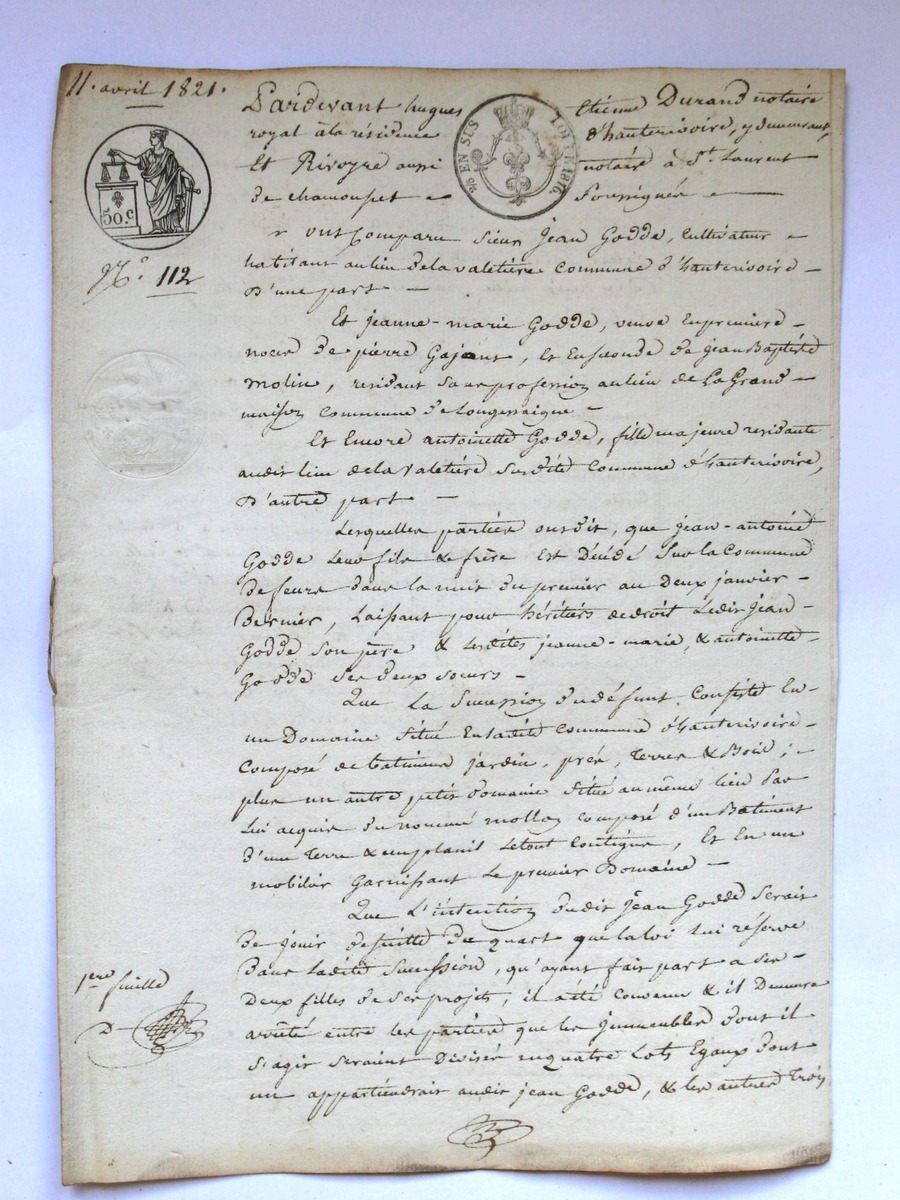 11. avril 1821.
50.c
N.° 112
EN SUS
LOI DE 1816
Pardevant hugues Etienne Durand notaire
royal à la résidence d'hauterivoire, y demeurant,
Et Rivoyre aussi notaire à St. Laurent
de chamousset Soussignés
ont Comparu Sieur Jean Godde, Cultivateur
habitant au lieu de la valetière commune d'hauterivoire
D'une part
Et jeanne-marie Godde, veuve en première
noces de pierre Gajant, Et En seconde de jean Baptiste
molin, residant sans profession au lieu de La Grand
maison Commune de Longessaigne
Et Encore antoinette Godde, fille majeure residante
audit lieu de la valetière susdite Commune d'hauterivoire,
D'autre part
Lesquelles parties ont dit, que jean-antoine
Godde Leur fils & frère Est Décédé Sur la Commune
de feurs dans la nuit du premier au Deux janvier
Dernier, Laissant pour héritiers de droit Ledit Jean
Godde Son père & Lesdites jeanne-marie, & antoinette
Godde Ses deux soeurs
Que La Succession du défunt Consiste En
un Domaine Situé En ladite Commune d'hauterivoire
Composé de batiment jardin, prés, Terres & Bois;
plus un autre petit domaine Situé au même lieu Par
Lui acquis du nommé mollon composé d'un Batiment
d'une Terre & un planil Letout Contigus, Et En un
mobilier Garnissant Le premier Domaine
Que L'intention dudit Jean Godde Serait
De jouir desuitte du quart que la loi lui réserve
Dans Ladite Succession, qu'ayant fait part a ses
Deux filles de Ses projets, il a été convenu & il Demeure
arrêté entre les parties que les Jmmeubles dont il
S'agit Seraient Divisés en quatre Lots Egaux dont
un appartiendrait audit jean Godde, & les autres Trois
1ere feuille
D